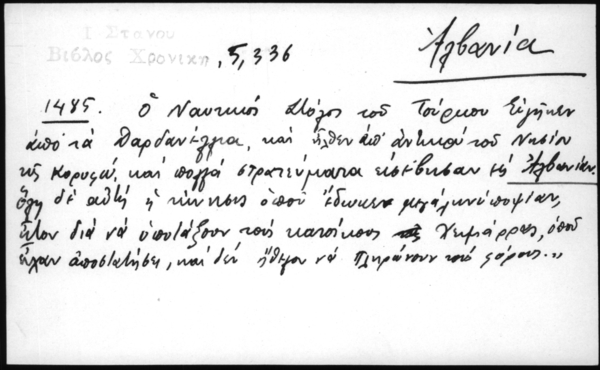 Ἀλβανία
Ι Στανου
Βιβλος Χρονικη, 5, 336
1485. Ὁ Ναυτικὸς Στόλος τοῦ Τούρκου Εὐγῆκεν
ἀπὸ τὰ Δαρδανέλλια, καὶ ἦλθεν ἀπ' ἀντικρὺ τοῦ Νησίου
τῆς Κορυφῶ, καὶ πολλὰ στρατεύματα εἰσέβησαν εἰς Ἀλβανίαν.
ὅλη δὲ αὐτὴ ἡ κίνησις ὁποῦ ἔδωκεν μεγάλην ὑποψίαν,
ἦτον διὰ νὰ ὑποτάξουν τοὺς κατοίκους τῆς Χειμάρρας, ὁποῦ
εἶχαν ἀποστατήσει, καὶ δὲν ἤθελον νὰ πληρώνουν τοὺς φόρους.„